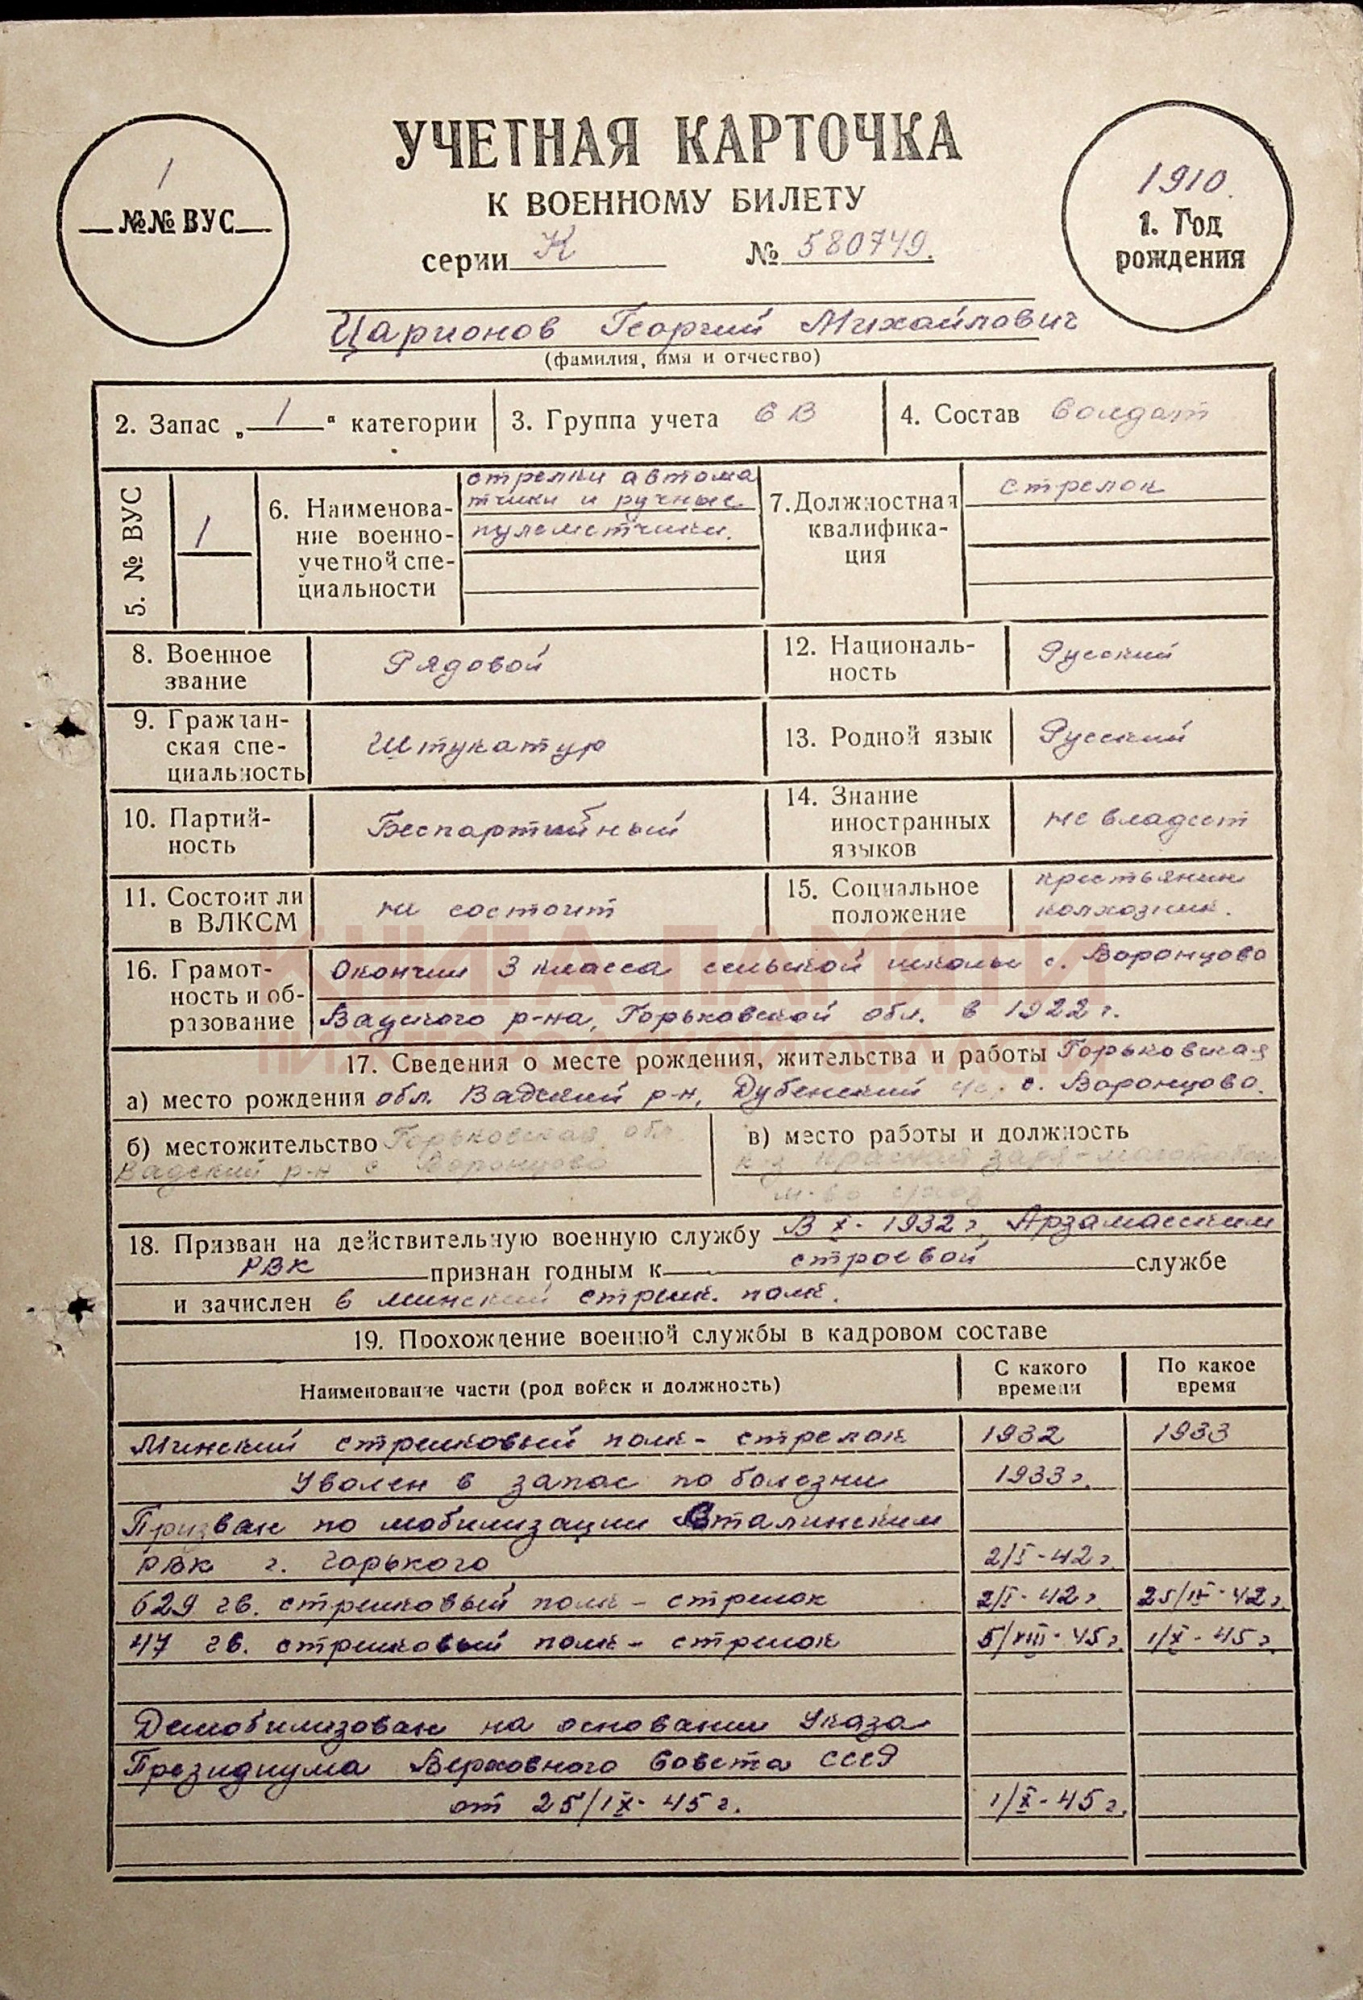 УЧЕТНАЯ КАРТОЧКА
К ВОЕННОМУ БИЛЕТУ
1
№№ ВУС
серии К № 580749.
1910.
1. Год
рождения
Царионов Георгий Михайлович
(фамилия, имя и отчество)
2. Запас „ 1 “ категории
3. Группа учета СВ
4. Состав солдат
5. № ВУС
1
6. Наименова-
ние военно-
учетной спе-
циальности
стрелки автома
тчики и ручные
пулеметчики.
7. Должностная
квалифика-
ция
стрелок
8. Военное
звание
Рядовой
12. Националь-
ность
Русский
9. Граждан-
ская спе-
циальность
Штукатур
13. Родной язык
Русский
10. Партий-
ность
Беспартийный
14. Знание
иностранных
языков
не владеет
11. Состоит ли
в ВЛКСМ
не состоит
15. Социальное
положение
крестьянин
колхозник.
КНИГА ПАМЯТИ
НИЖЕГОРОДСКОЙ ОБЛАСТИ
16. Грамот-
ность и об-
разование
Окончил 3 класса сельской школы с. Воронцово
Вадского р-на, Горьковской обл. в 1922 г.
17. Сведения о месте рождения, жительства и работы Горьковская
а) место рождения обл. Вадский р-н, Дубенский с. Воронцово.
б) местожительство Горьковская обл
Вадский р-н с Воронцово
в) место работы и должность
к-з Красная заря
18. Призван на действительную военную службу В X-1932 г, Арзамасским
РВК признан годным к строевой службе
и зачислен в минский стрелк. полк.
19. Прохождение военной службы в кадровом составе
Наименование части (род войск и должность)
С какого
времени
По какое
время
Минский стрелковый полк - стрелок 1932 1933
Уволен в запас по болезни 1933 г.
Призван по мобилизации Сталинским
РВК г. Горького 2/I-42 г.
629 гв. стрелковый полк - стрелок 2/I-42 г. 25/IX-42 г.
47 гв. стрелковый полк - стрелок 5/VIII-45 г. 1/X-45 г.
Демобилизован на основании Указа
Президиума Верховного Совета СССР
от 25/IX-45 г. 1/X-45 г.